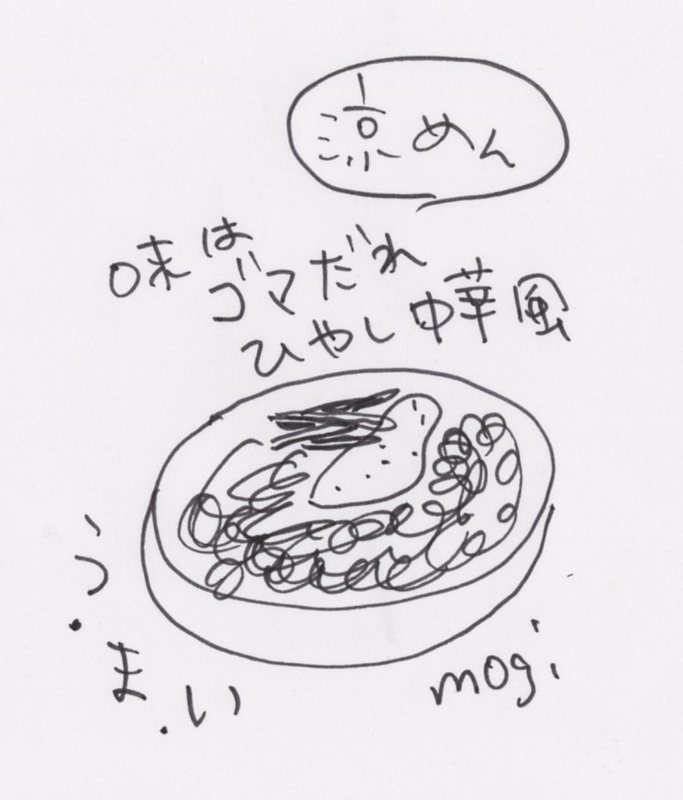 涼めん
味は
ゴマだれ
ひやし中華風
う.ま.い
mogi